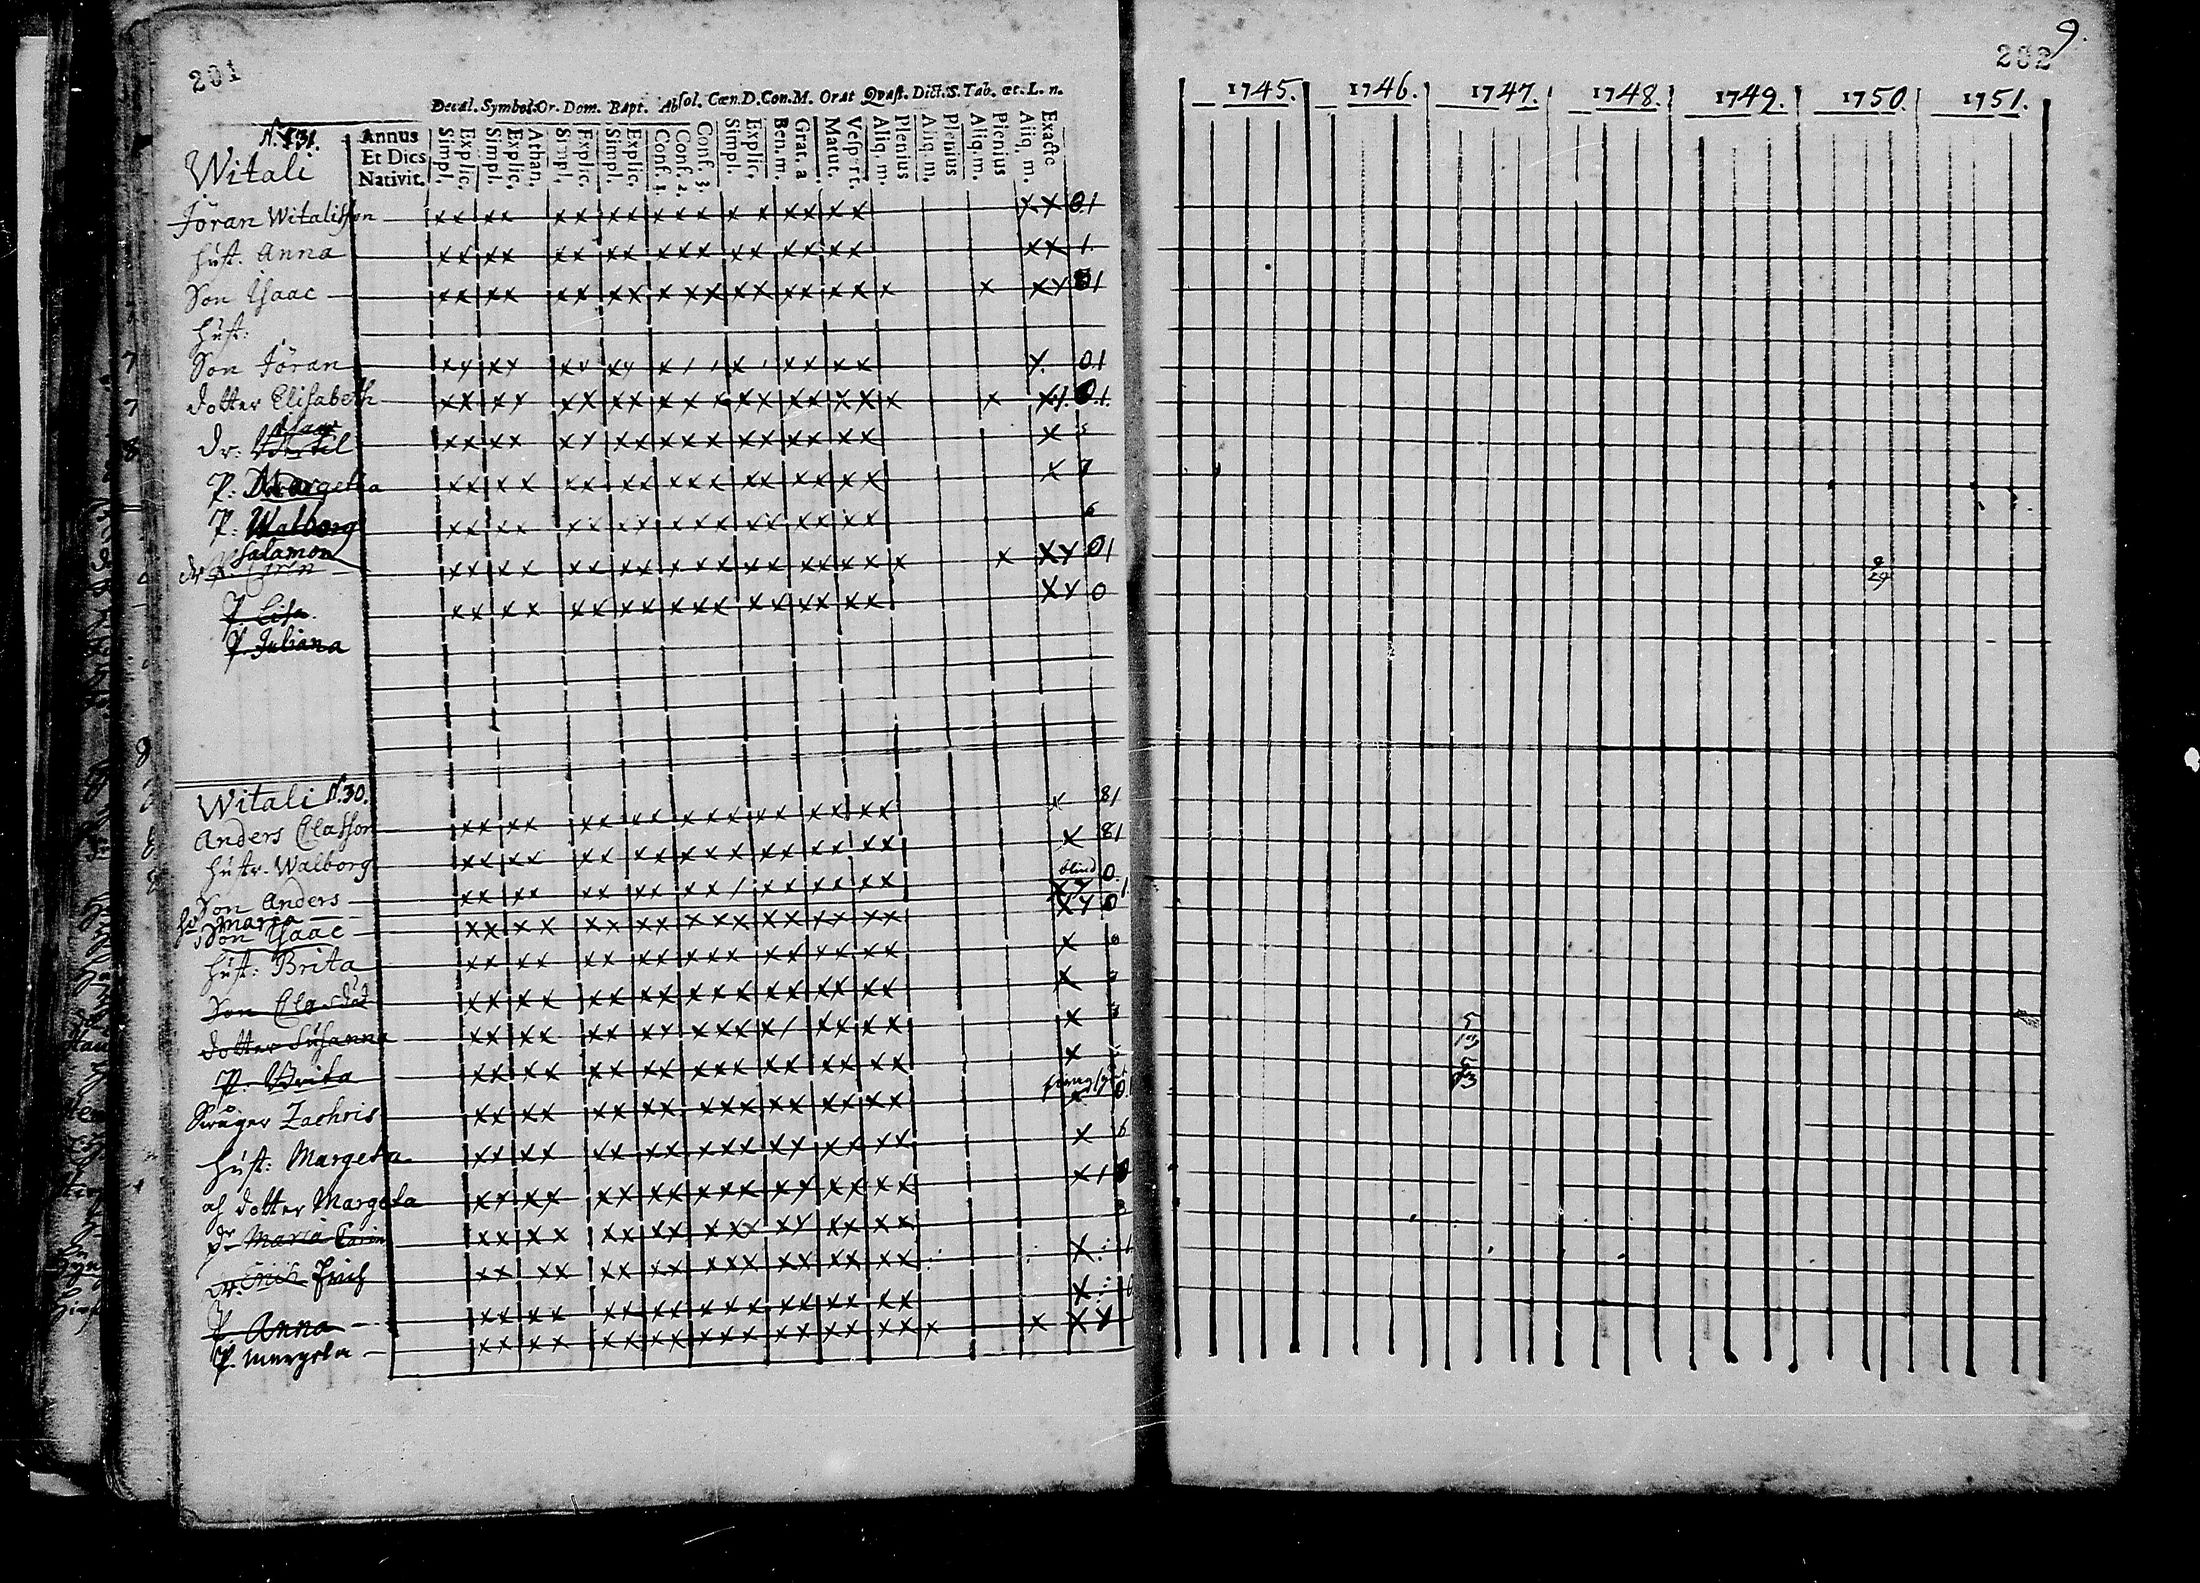 201
202
9.
Decal. Symbol. Or. Dom. Bapt. Absol. Cœn. D. Con. M. Orat Qvæst. Dict. S. Tab. œt. L. n.
N. 131.
Witali
Annus Et Dies Nativit.
Simpl. Explic. Simpl. Explic. Athan. Simpl. Explic. Simpl. Explic. Conf. 1. Conf. 2. Conf. 3. Simpl. Explic. Ben. m. Grat. a Matut. Vespert. Aliq. m. Plenius Aliq. m. Plenius Aliq. m. Plenius Aliq. m. Exacte
1745. 1746. 1747. 1748. 1749. 1750. 1751.
Jöran Witalisson
Hust. Anna
Son Isaac
Hust:
Son Jöran
dotter Elisabeth
dr:
P: Margeta
P: Walborg
Salamon
dr
9
29
P. Lisa
P. Juliana
Witali N. 30.
Anders Classon
Hustr. Walborg
blind
Son Anders
Maria
Son Isaac
Hust: Brita
Son Clas
dotter Susanna
5
13
P. Brita
5
13
Swåger Zachris
Hust: Margeta
dotter Margeta
Maria Carin
dr. Erich Erich
P Anna
P. Margeta